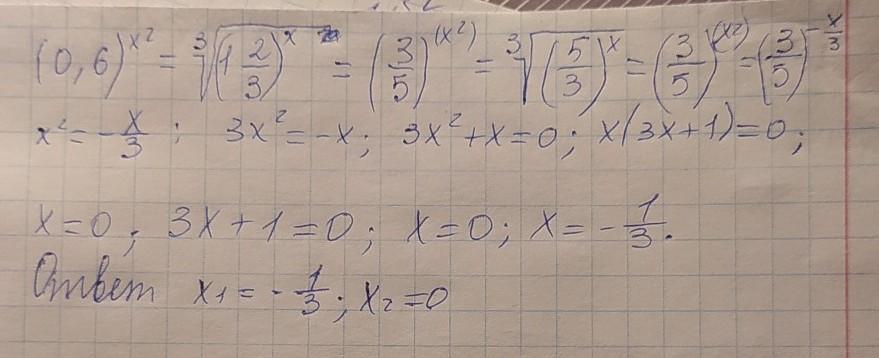 (0,6)^{x^2} = \sqrt[3]{(1\frac{2}{3})^x} = (\frac{3}{5})^{(x^2)} = \sqrt[3]{(\frac{5}{3})^x} = (\frac{3}{5})^{(x^2)} = (\frac{3}{5})^{-\frac{x}{3}}
x^2 = -\frac{x}{3}; 3x^2 = -x; 3x^2 + x = 0; x(3x+1) = 0;
x = 0; 3x + 1 = 0; x = 0; x = -\frac{1}{3}.
Ответ x_1 = -\frac{1}{3}; x_2 = 0